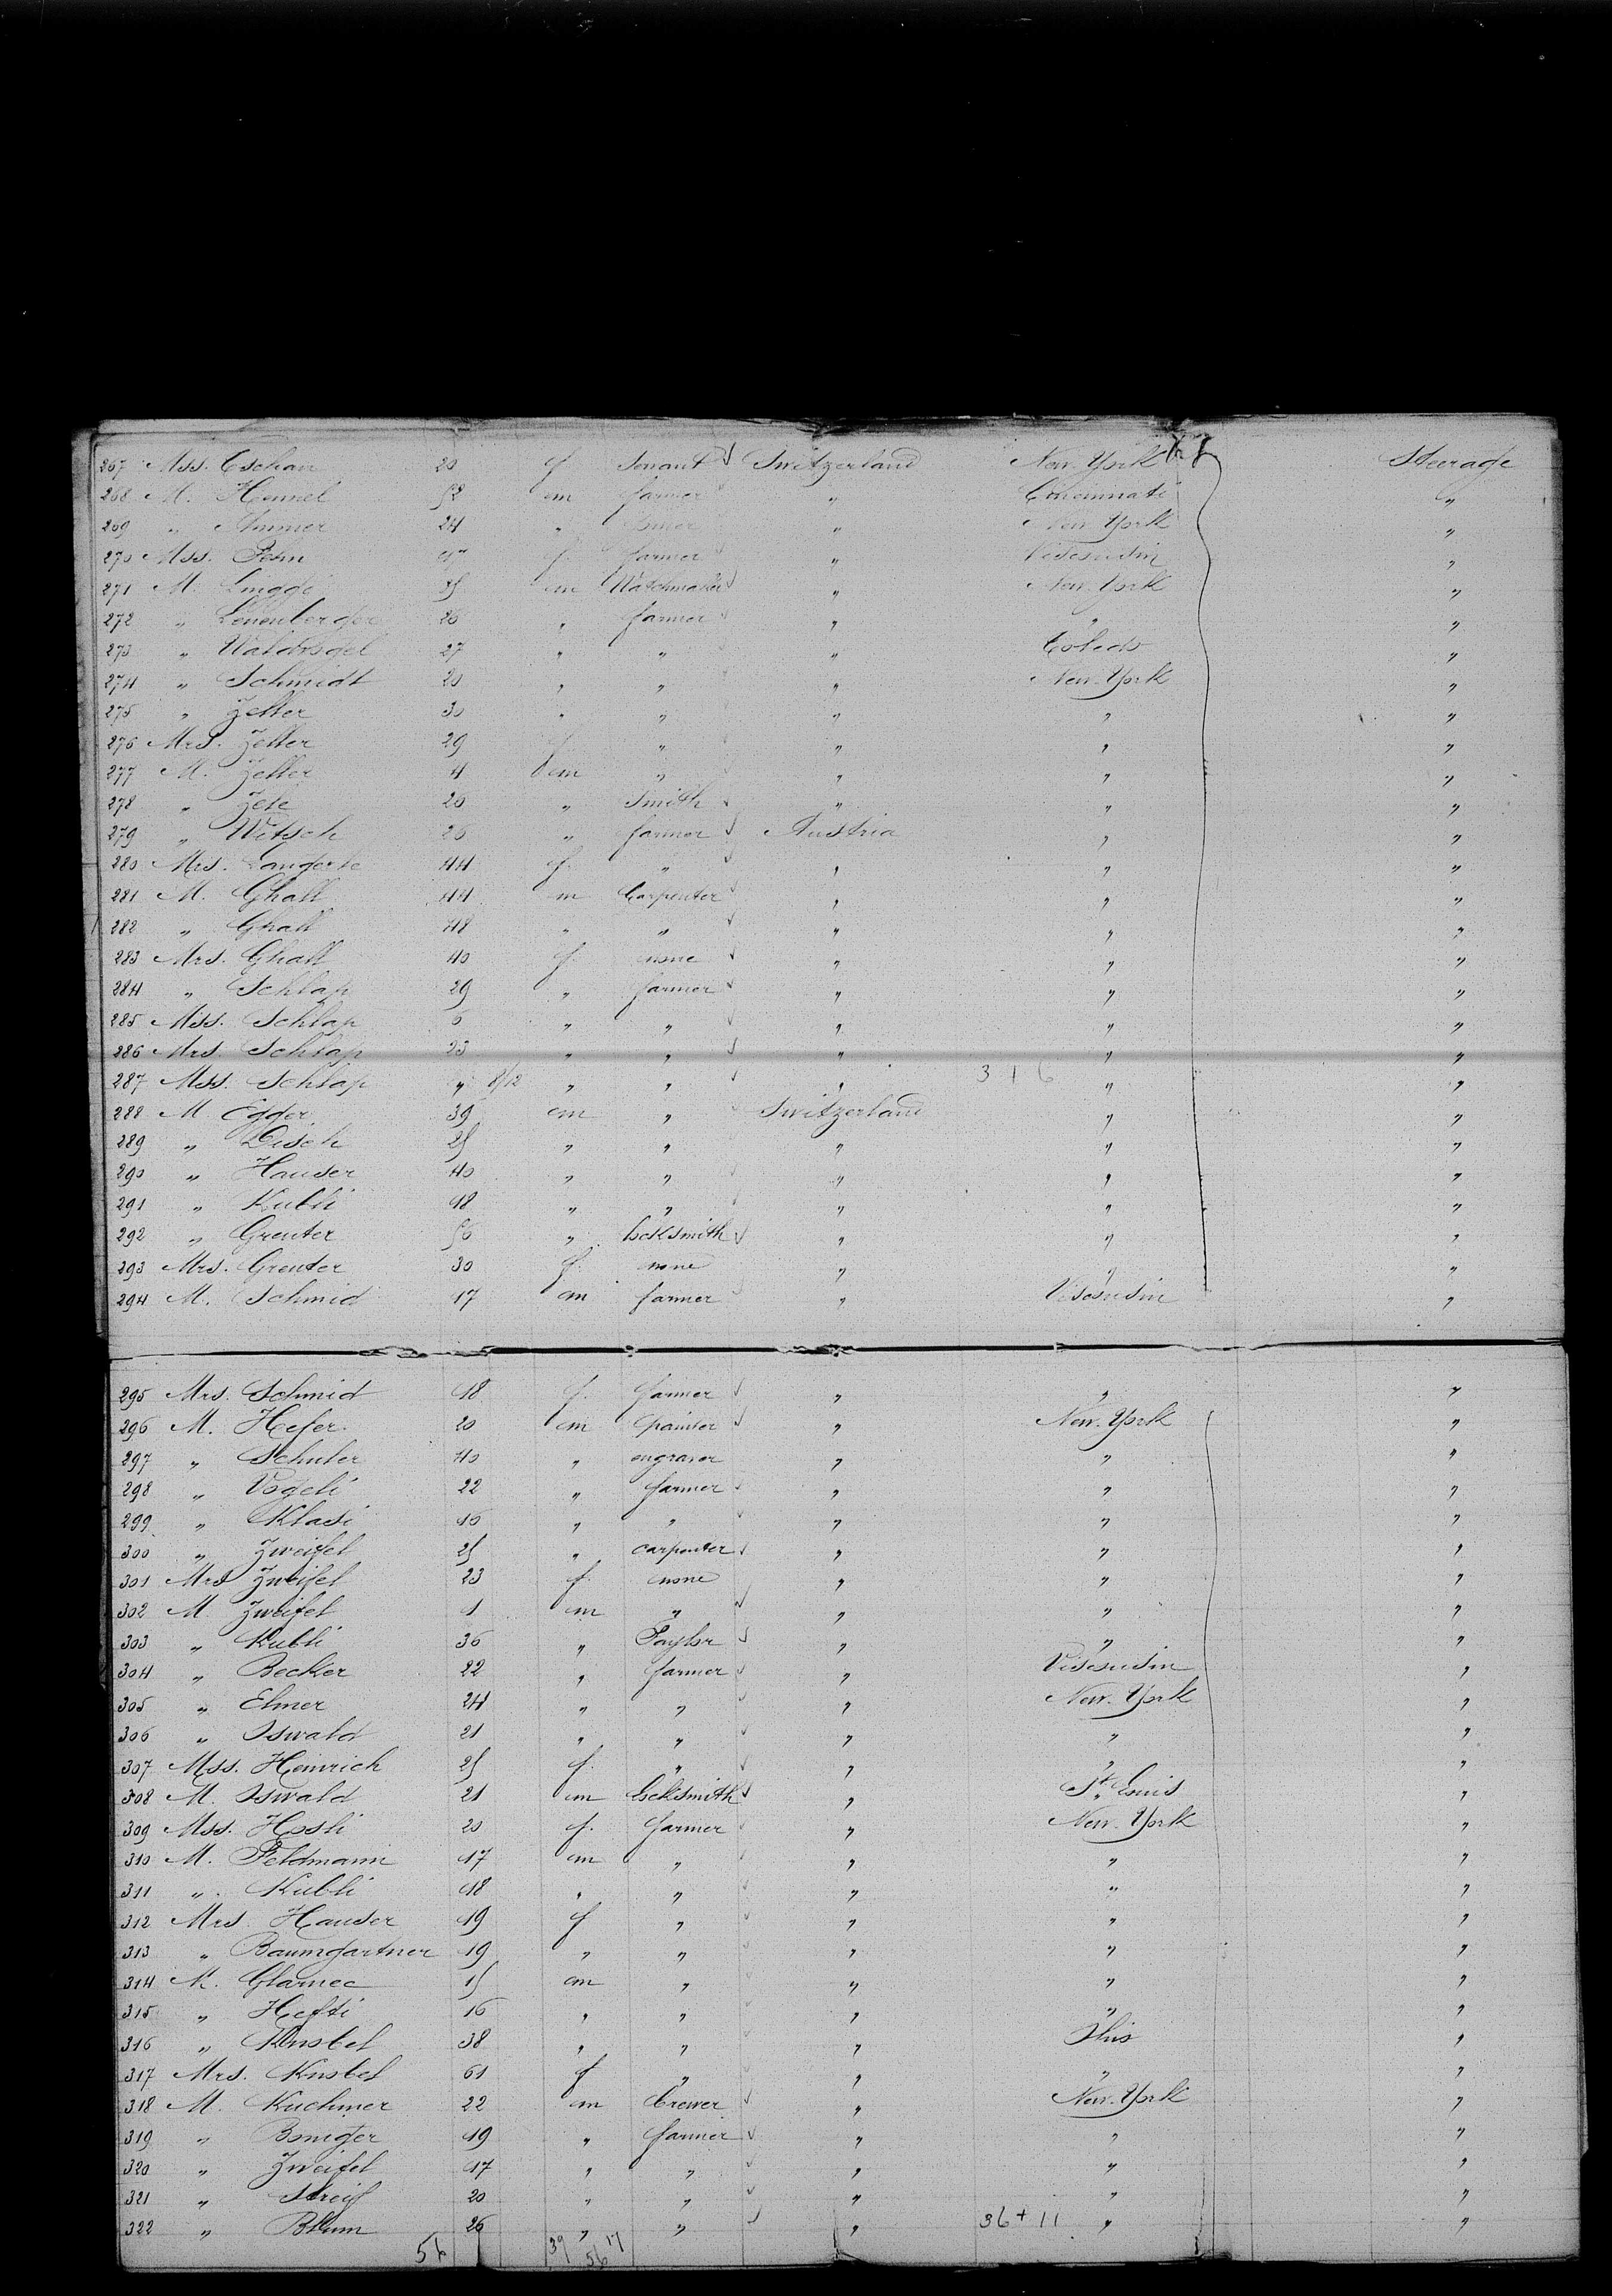 267 Mss. Tschan 20 f Servant Switzerland New York Steerage
268 M. Hemel 52 m farmer " Cincinnati "
269 " Ammer 24 " " New York "
270 Mss. 47 f farmer " Visconsin "
271 M. Linggi 25 m Watchmaker " New York "
272 " Leuenberger 26 " farmer " " "
273 " Waldvogel 27 " " " Toledo "
274 " Schmidt 20 " " " New York "
275 " Zeller 30 " " " " "
276 Mrs. Zeller 29 f " " " "
277 M. Zeller 4 m " " " "
278 " 20 " Smith " " "
279 " Witsch 26 " farmer Austria " "
280 Mrs. 44 f. " " " "
281 M. Ghall 44 m Carpenter " " "
282 " Ghall 48 " " " " "
283 Mrs. Ghall 40 f. none " " "
284 " Schlap 29 " farmer " " "
285 Miss. Schlap 6 " " " " "
286 Mrs. Schlap 23 " " " " "
287 Mss. Schlap " 8/12 " " " 3 + 6 " "
288 M Egger 39 m " Switzerland " "
289 " Disch 25 " " " " "
290 " Hauser 40 " " " " "
291 " Kubli 18 " " " " "
292 " Greuter 56 " locksmith " " "
293 Mrs. Greuter 30 f. none " " "
294 M. Schmid 17 m farmer " Visconsin "
295 Mrs. Schmid 18 f. farmer " " "
296 M. Hefer 20 m painter " New York "
297 " Schuler 40 " engraver " " "
298 " Vogeli 22 " farmer " " "
299 " Klasi 16 " " " " "
300 " Zweifel 25 " carpenter " " "
301 Mrs Zweifel 23 f. none " " "
302 M. Zweifel 1 m " " " "
303 " Kubli 36 " Taylor " " "
304 " Becker 22 " farmer " Visconsin "
305 " Elmer 24 " " " New York "
306 " Oswald 21 " " " " "
307 Mss. Heinrich 25 f. " " " "
308 M. Oswald 21 m locksmith " St Louis "
309 Mss. Hosli 20 f. farmer " New York "
310 M. Feldmann 17 m " " " "
311 " Kubli 18 " " " " "
312 Mrs. Hauser 19 f " " " "
313 " Baumgartner 19 " " " " "
314 M. Glarnec 15 m " " " "
315 " Hefti 16 " " " " "
316 " Knobel 38 " " " Ohio "
317 Mrs. Knobel 61 f " " " "
318 M. Kuchmer 22 m brewer " New York "
319 " Boniger 19 " farmer " " "
320 " Zweifel 17 " " " " "
321 " Streif 20 " " " " "
322 " Blum 26 " " " 36 + 11 " "
56 39 17
56